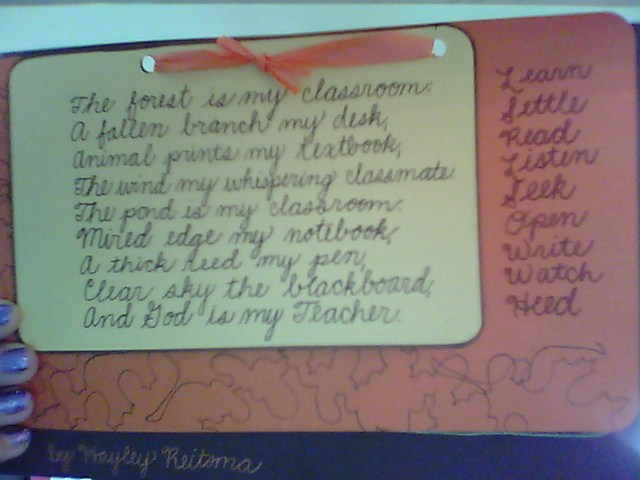 The forest is my classroom:
A fallen branch my desk,
Animal prints my textbook,
The wind my whispering classmate.
The pond is my classroom:
Mired edge my notebook,
A thick reed my pen,
Clear sky the blackboard,
And God is my Teacher.
Learn
Settle
Read
Listen
Seek
Open
Write
Watch
Heed
by Hayley Reitsma